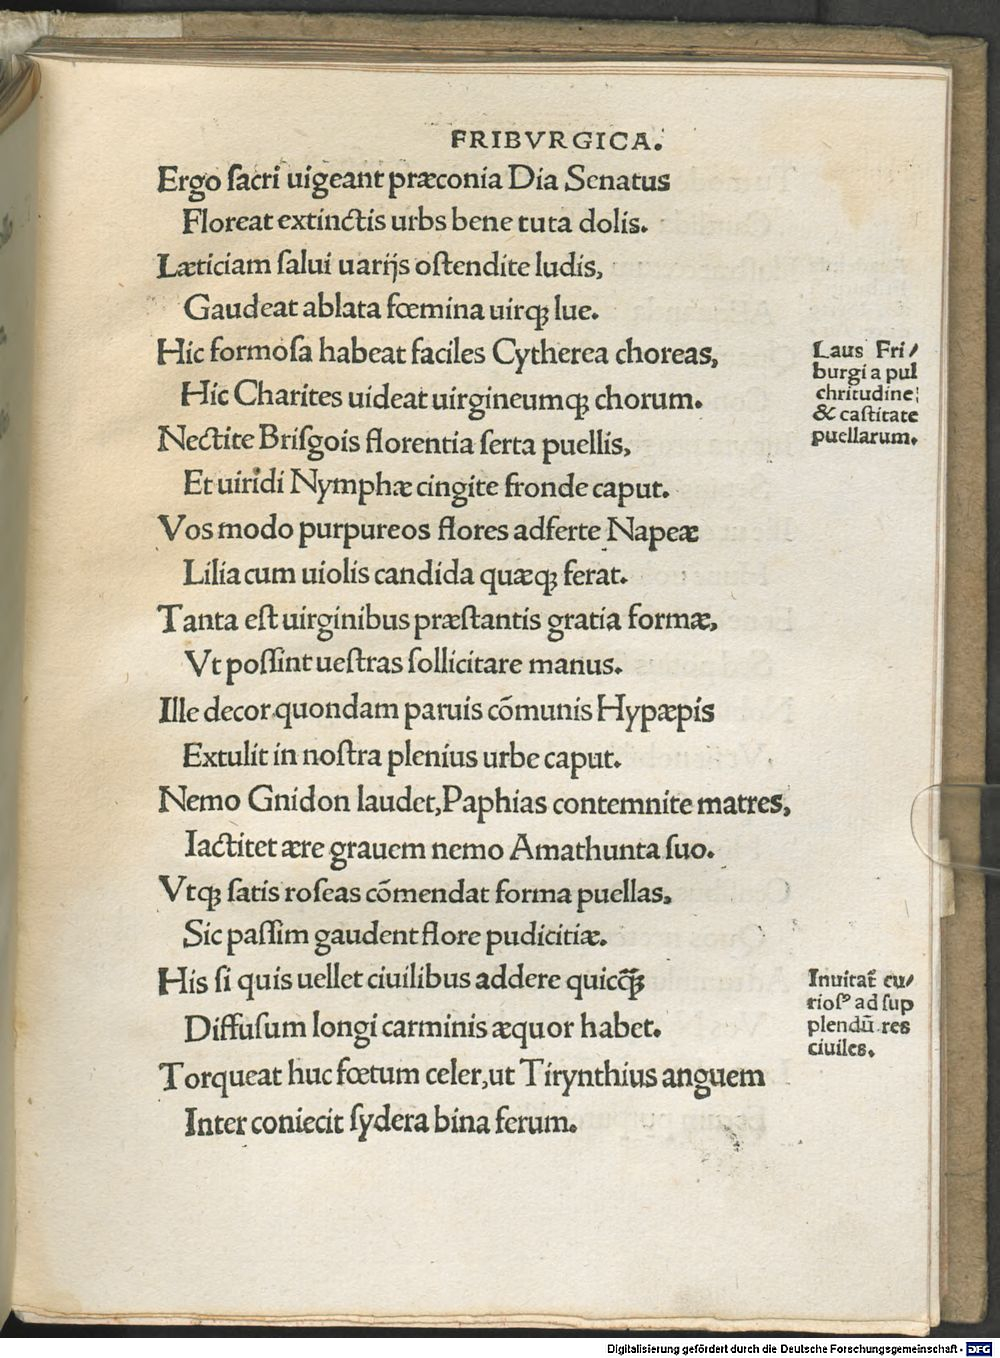 FRIBVRGICA.
Ergo ſacri uigeant præconia Dia Senatus
Floreat extinctis urbs bene tuta dolis.
Læticiam ſalui uarijs oſtendite ludis,
Gaudeat ablata fœmina uirqꝫ lue.
Hic formoſa habeat faciles Cytherea choreas,
Hic Charites uideat uirgineumqꝫ chorum.
Laus Fri/
burgi a pul
chritudine:
& caſtitate
puellarum.
Nectite Briſgois florentia ſerta puellis,
Et uiridi Nymphæ cingite fronde caput.
Vos modo purpureos flores adferte Napeæ
Lilia cum uiolis candida quæqꝫ ferat.
Tanta eſt uirginibus præſtantis gratia formæ,
Vt poſſint ueſtras ſollicitare manus.
Ille decor quondam paruis cõmunis Hypæpis
Extulit in noſtra plenius urbe caput.
Nemo Gnidon laudet, Paphias contemnite matres,
Iactitet ære grauem nemo Amathunta ſuo.
Vtqꝫ ſatis roſeas cõmendat forma puellas,
Sic paſſim gaudent flore pudicitiæ.
His ſi quis uellet ciuilibus addere quicq̃ꝫ
Diffuſum longi carminis æquor habet.
Inuitat᷑ cu/
rioſꝰ ad ſup
plendũ res
ciuiles.
Torqueat huc fœtum celer, ut Tirynthius anguem
Inter coniecit ſydera bina ferum.
Digitalisierung gefördert durch die Deutsche Forschungsgemeinschaft - DFG